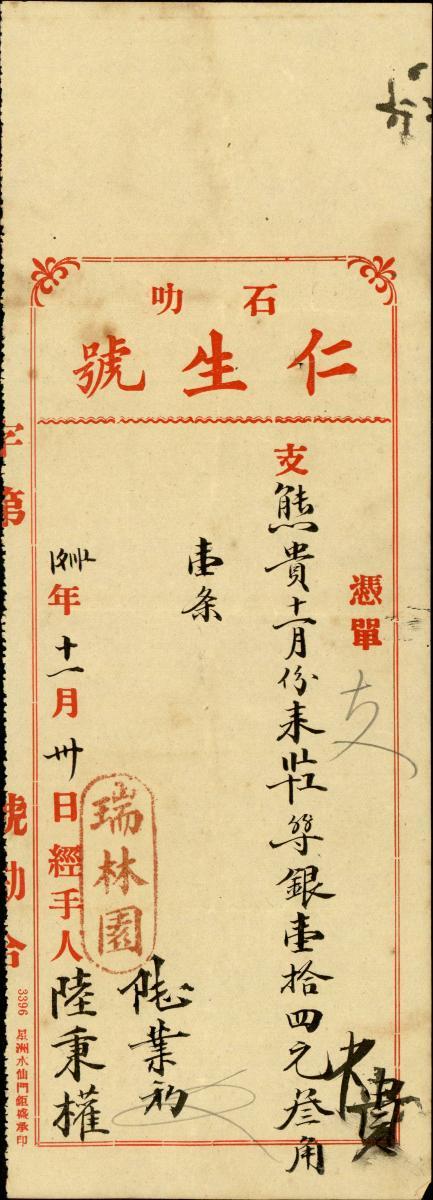 石叻
仁生號
憑單
支熊貴十一月份來
銀壹拾四元叁角
壹条
年十一月卅日經手人陸秉權
瑞林園
字第
號勘合
3396 星洲水仙門鉅盛承印
支